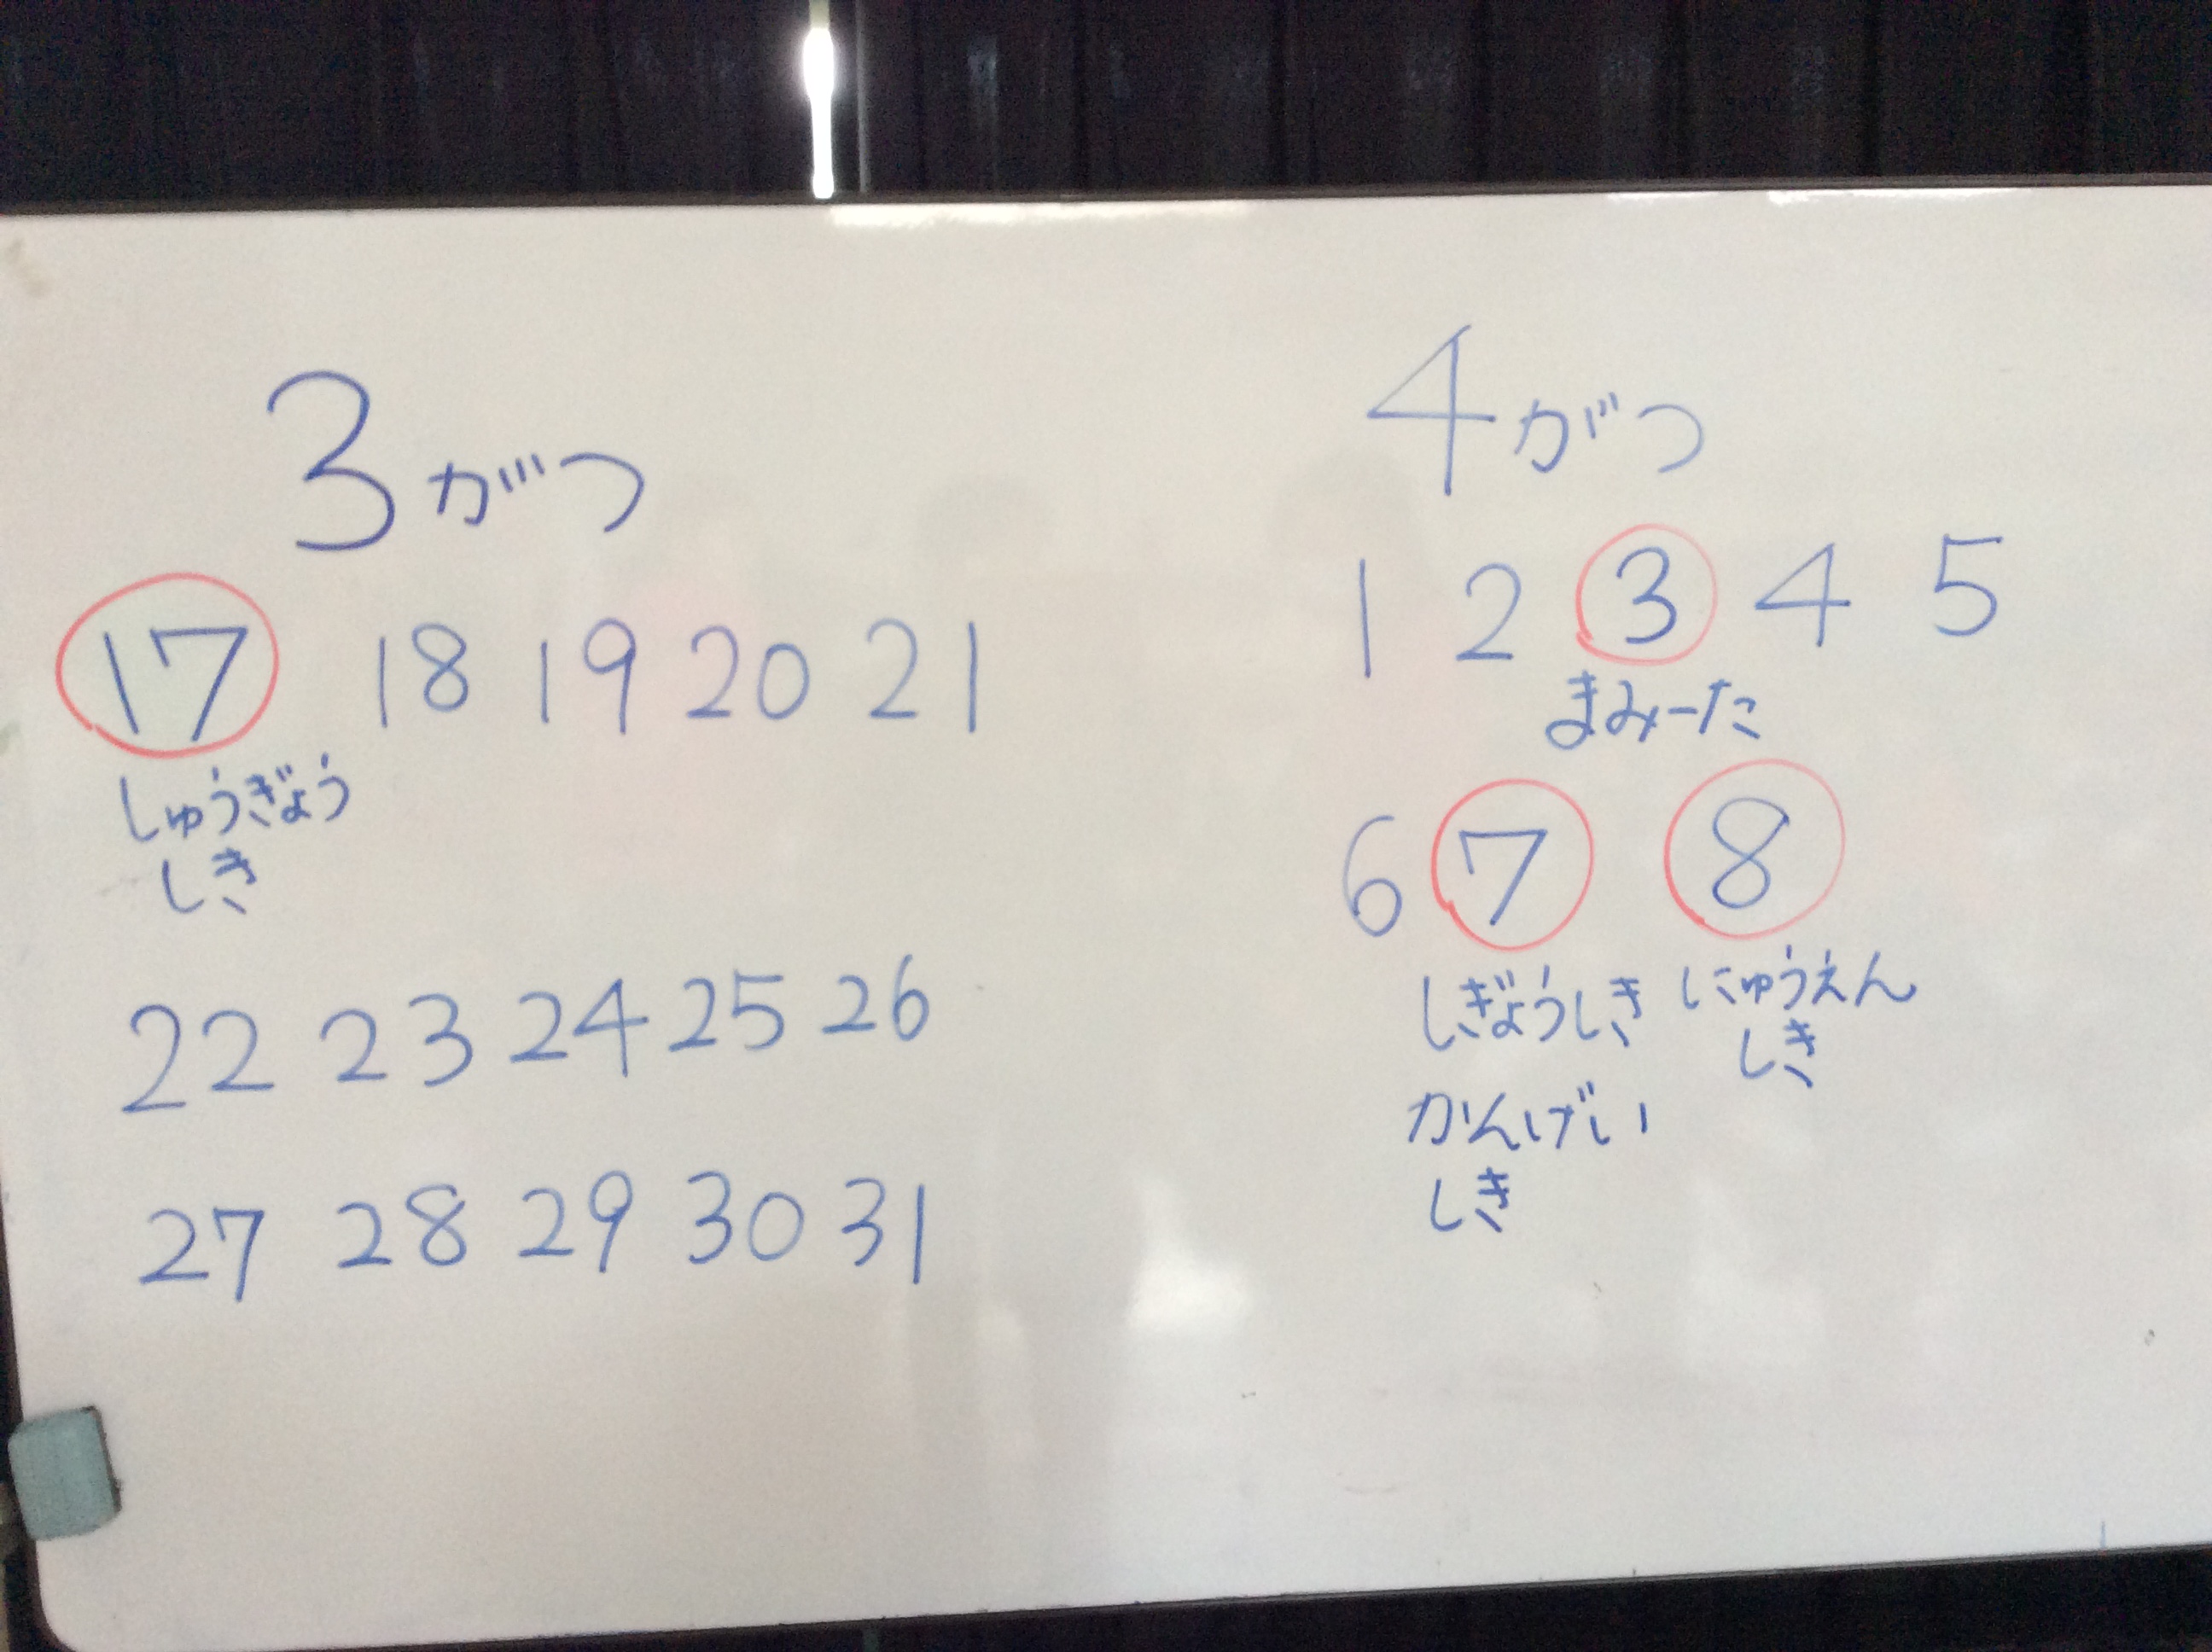 3がつ
17 18 19 20 21
しゅうぎょう
しき
22 23 24 25 26
27 28 29 30 31
4がつ
1 2 3 4 5
まみーた
6 7 8
しぎょうしき にゅうえん
しき
かんげい
しき